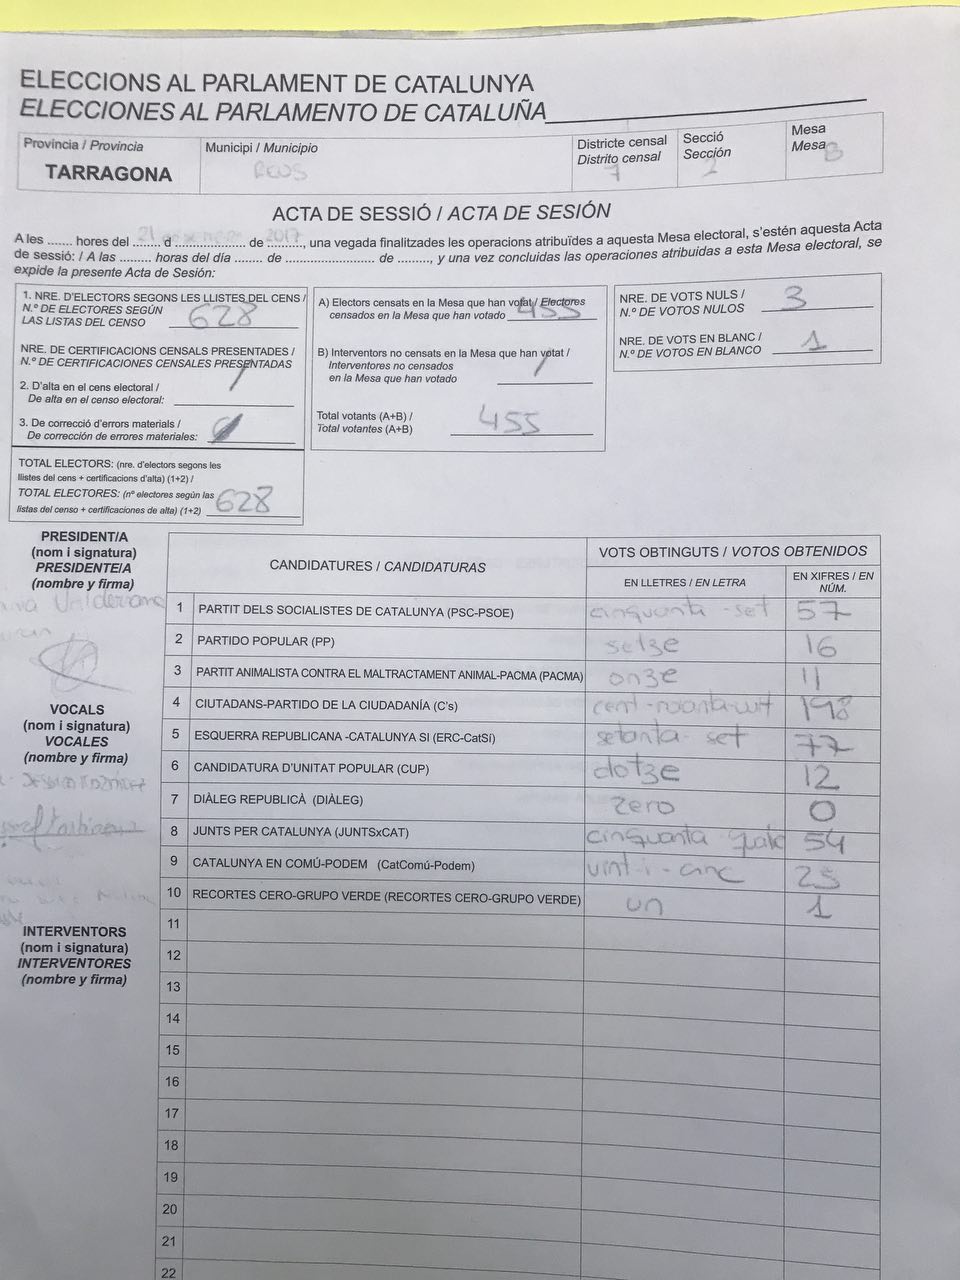 ELECCIONS AL PARLAMENT DE CATALUNYA
ELECCIONES AL PARLAMENTO DE CATALUÑA
Província / Provincia
TARRAGONA
Municipi / Municipio
REUS
Districte censal
Distrito censal
7
Secció
Sección
2
Mesa
Mesa B
ACTA DE SESSIÓ / ACTA DE SESIÓN
A les ....... hores del 21 d de 2017, una vegada finalitzades les operacions atribuïdes a aquesta Mesa electoral, s'estén aquesta Acta
de sessió: / A las ......... horas del día ........ de ...................... de ........, y una vez concluidas las operaciones atribuidas a esta Mesa electoral, se
expide la presente Acta de Sesión:
1. NRE. D'ELECTORS SEGONS LES LLISTES DEL CENS /
N.º DE ELECTORES SEGÚN
LAS LISTAS DEL CENSO 628
NRE. DE CERTIFICACIONS CENSALS PRESENTADES /
N.º DE CERTIFICACIONES CENSALES PRESENTADAS
2. D'alta en el cens electoral /
De alta en el censo electoral:
3. De correcció d'errors materials /
De corrección de errores materiales:
TOTAL ELECTORS: (nre. d'electors segons les
llistes del cens + certificacions d'alta) (1+2) /
TOTAL ELECTORES: (nº electores según las
listas del censo + certificaciones de alta) (1+2) 628
A) Electors censats en la Mesa que han votat / Electores
censados en la Mesa que han votado 455
B) Interventors no censats en la Mesa que han votat /
Interventores no censados
en la Mesa que han votado /
Total votants (A+B) /
Total votantes (A+B) 455
NRE. DE VOTS NULS /
N.º DE VOTOS NULOS 3
NRE. DE VOTS EN BLANC /
N.º DE VOTOS EN BLANCO 1
PRESIDENT/A
(nom i signatura)
PRESIDENTE/A
(nombre y firma)
VOCALS
(nom i signatura)
VOCALES
(nombre y firma)
INTERVENTORS
(nom i signatura)
INTERVENTORES
(nombre y firma)
CANDIDATURES / CANDIDATURAS
VOTS OBTINGUTS / VOTOS OBTENIDOS
EN LLETRES / EN LETRA
EN XIFRES / EN NÚM.
1 PARTIT DELS SOCIALISTES DE CATALUNYA (PSC-PSOE) cinquanta-set 57
2 PARTIDO POPULAR (PP) setze 16
3 PARTIT ANIMALISTA CONTRA EL MALTRACTAMENT ANIMAL-PACMA (PACMA) onze 11
4 CIUTADANS-PARTIDO DE LA CIUDADANÍA (C's) cent-noranta-vuit 198
5 ESQUERRA REPUBLICANA -CATALUNYA SI (ERC-CatSí) setanta-set 77
6 CANDIDATURA D'UNITAT POPULAR (CUP) dotze 12
7 DIÀLEG REPUBLICÀ (DIÀLEG) zero 0
8 JUNTS PER CATALUNYA (JUNTSxCAT) cinquanta 54
9 CATALUNYA EN COMÚ-PODEM (CatComú-Podem) vint-i-cinc 25
10 RECORTES CERO-GRUPO VERDE (RECORTES CERO-GRUPO VERDE) un 1
11
12
13
14
15
16
17
18
19
20
21
22